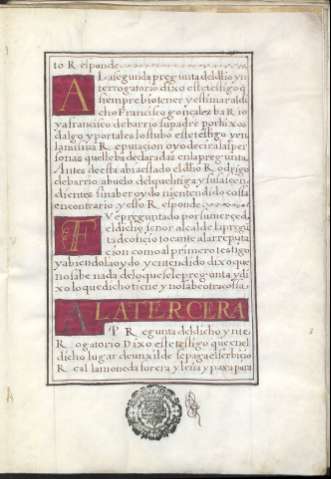 to R esponde
A La segunda pregunta del dho yn
terrogatorio dixo este testigo q
siempre bio tener y estimar al di
cho Francisco gonçalez ba Rio
ya francisco de barrio su padre por hixos
dalgo y por tales los tubo este testigo y en
la misma R eputacion oyo decir a las per
sonas que lleba declaradas en la pregunta.
Antes de esta abia estado el dho R odrigo
de barrio abuelo del que litiga y sus ascen
dientes sin aber oydo ni entendido cossa
en contrario y esto R esponde
F ue preguntado por su merced
el dicho señor alcalde la pregũ
ta de oficio tocante a la rreputa
cion como al primero testigo
y abiendola oydo y entendido dixo que
no sabe nada de lo que se le pregunta y di
xo lo que dicho tiene y no sabe otra cosa
A LA TERCERA
P R egunta del dicho ynte
R ogatorio Dixo este testigo que en el
dicho lugar de unxilde se paga el serbicio
R eal la moneda forera y leña y paxa para